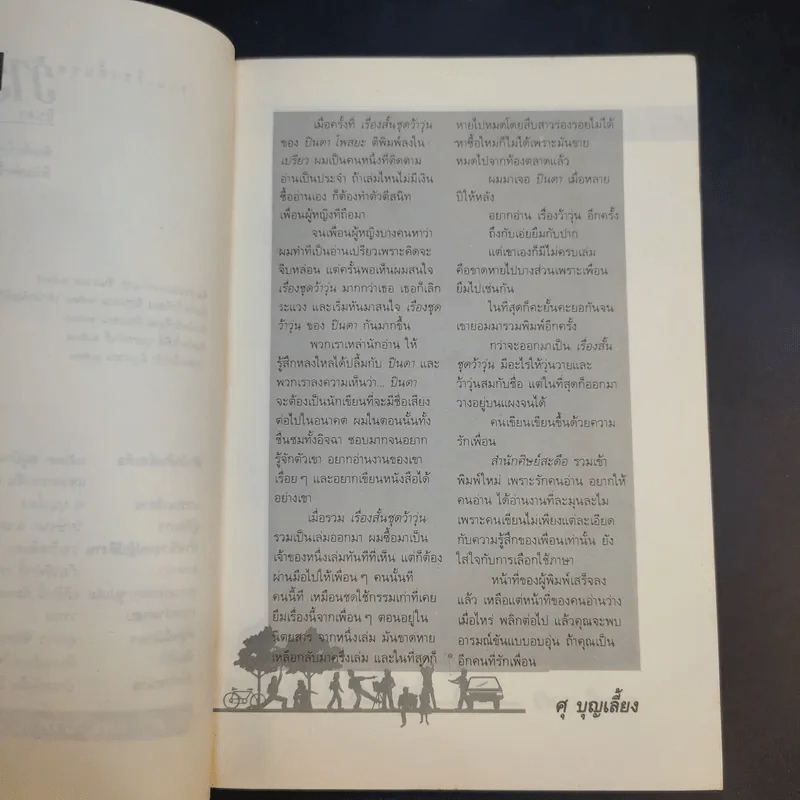 เมื่อครั้งที่ เรื่องสั้นชุดว้าวุ่น
ของ ปินดา โพสยะ ตีพิมพ์ลงใน
เปรียว ผมเป็นคนหนึ่งที่ติดตาม
อ่านเป็นประจำ ถ้าเล่มไหนไม่มีเงิน
ซื้ออ่านเอง ก็ต้องทำตัวตีสนิท
เพื่อนผู้หญิงที่ถือมา
จนเพื่อนผู้หญิงบางคนหาว่า
ผมทำทีเป็นอ่านเปรียวเพราะคิดจะ
จีบหล่อน แต่ครั้นพอเห็นผมสนใจ
เรื่องสั้นชุดว้าวุ่น มากกว่าเธอ เธอก็เลิก
ระแวง และเริ่มหันมาสนใจ เรื่องชุด
ว้าวุ่น ของ ปินดา กันมากขึ้น
พวกเราเหล่านักอ่าน ให้
รู้สึกหลงใหลได้ปลื้มกับ ปินดา และ
พวกเราลงความเห็นว่า... ปินดา
จะต้องเป็นนักเขียนที่จะมีชื่อเสียง
ต่อไปในอนาคต ผมในตอนนั้นทั้ง
ชื่นชมทั้งอิจฉา ชอบมากจนอยาก
รู้จักตัวเขา อยากอ่านงานของเขา
เรื่อยๆ และอยากเขียนหนังสือได้
อย่างเขา
เมื่อรวม เรื่องสั้นชุดว้าวุ่น
รวมเป็นเล่มออกมา ผมซื้อมาเป็น
เจ้าของหนึ่งเล่มทันทีที่เห็น แต่ก็ต้อง
ผ่านมือไปให้เพื่อนๆ คนนั้นที
คนนี้ที เหมือนชดใช้กรรมเก่าที่เคย
ยืมเรื่องนี้จากเพื่อนๆ ตอนอยู่ใน
นิตยสาร จากหนึ่งเล่ม มันขาดหาย
เหลือกลับมาครึ่งเล่ม และในที่สุดก็
หายไปหมดโดยสืบสาวร่องรอยไม่ได้
หาซื้อใหม่ก็ไม่ได้เพราะมันขาย
หมดไปจากท้องตลาดแล้ว
ผมมาเจอ ปินดา เมื่อหลาย
ปีให้หลัง
อยากอ่าน เรื่องว้าวุ่น อีกครั้ง
ถึงกับเอ่ยยืมกับปาก
แต่เขาเองก็มีไม่ครบเล่ม
คือขาดหายไปบางส่วนเพราะเพื่อน
ยืมไปเช่นกัน
ในที่สุดก็คะยั้นคะยอกันจน
เขายอมมารวมพิมพ์อีกครั้ง
กว่าจะออกมาเป็น เรื่องสั้น
ชุดว้าวุ่น มีอะไรให้วุ่นวายและ
ว้าวุ่นสมกับชื่อ แต่ในที่สุดก็ออกมา
วางอยู่บนแผงจนได้
คนเขียนเขียนขึ้นด้วยความ
รักเพื่อน
สำนักศิษย์สะดือ รวมเข้า
พิมพ์ใหม่ เพราะรักคนอ่าน อยากให้
คนอ่าน ได้อ่านงานที่ละมุนละไม
เพราะคนเขียนไม่เพียงแต่ละเอียด
กับความรู้สึกของเพื่อนเท่านั้น ยัง
ใส่ใจกับการเลือกใช้ภาษา
หน้าที่ของผู้พิมพ์เสร็จลง
แล้ว เหลือแต่หน้าที่ของคนอ่านว่าง
เมื่อไหร่ พลิกต่อไป แล้วคุณจะพบ
อารมณ์ขันแบบอบอุ่น ถ้าคุณเป็น
อีกคนที่รักเพื่อน
ศุ บุญเลี้ยง